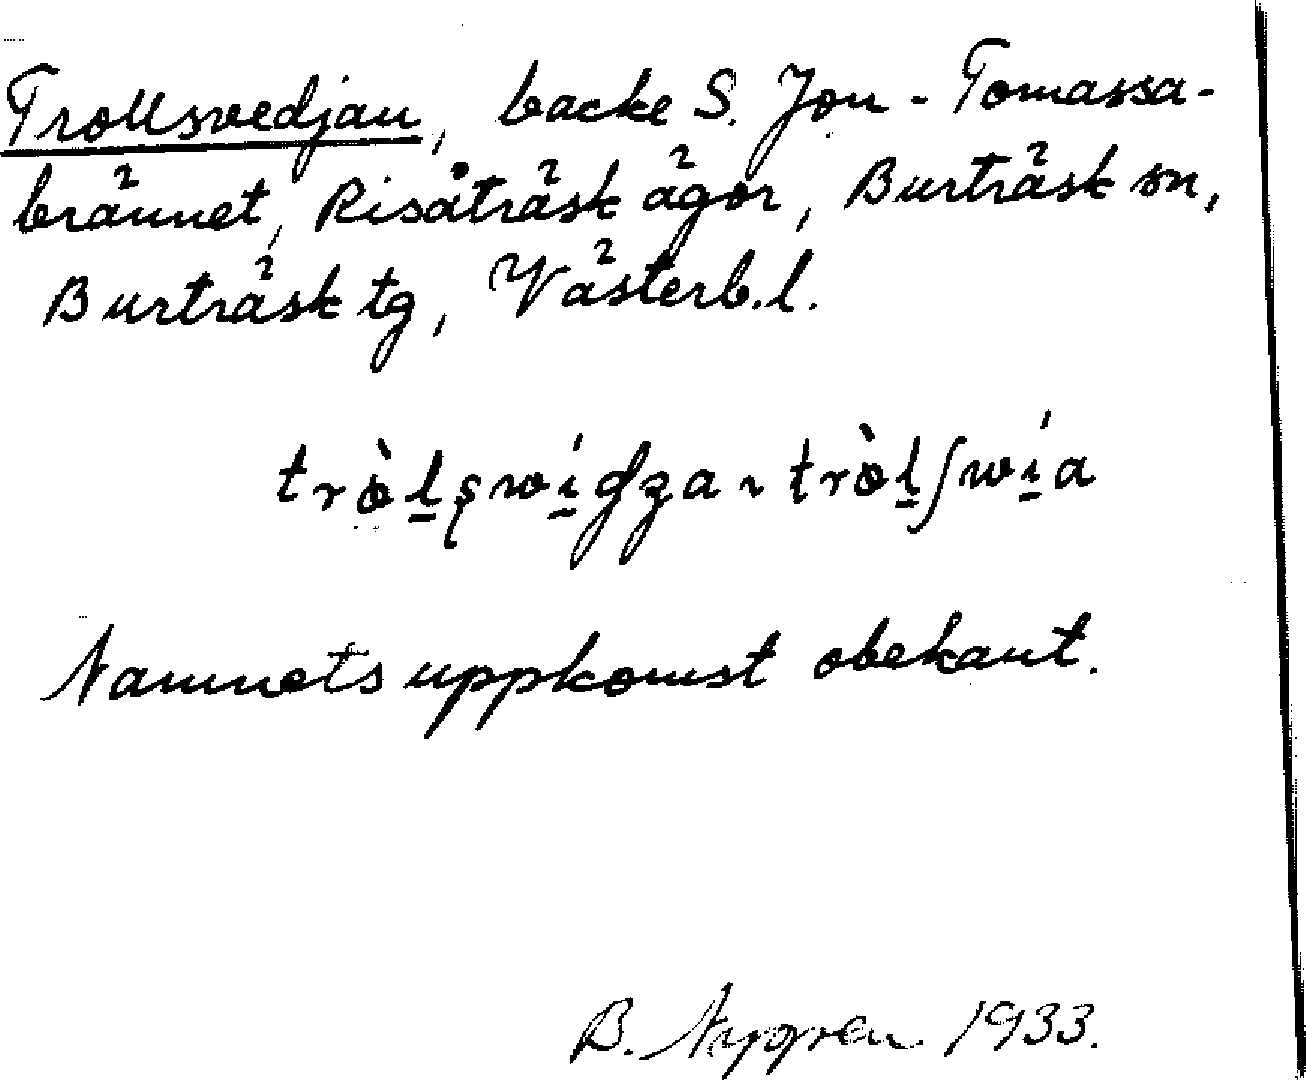 Trollsvedjan, backe S. Jon-Tomassa-
brännet, Risåträsk ägor, Burträsk sn,
Burträsk tg, Västerb. l.
Namnets uppkomst obekant.
B. Nygren 1933.